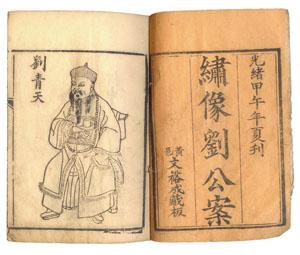 光緒甲午年夏刊
繡像劉公案
黃邑文裕成藏板
劉青天